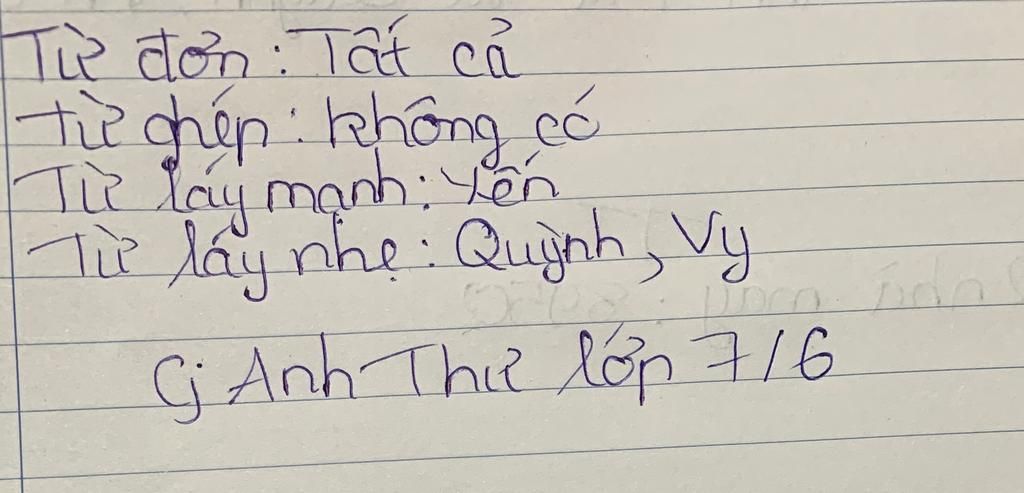 Từ đơn: Tất cả
Từ ghép: không có
Từ láy mạnh: Yến
Từ láy nhẹ: Quỳnh, Vy
Cj Anh Thư lớp 7/6